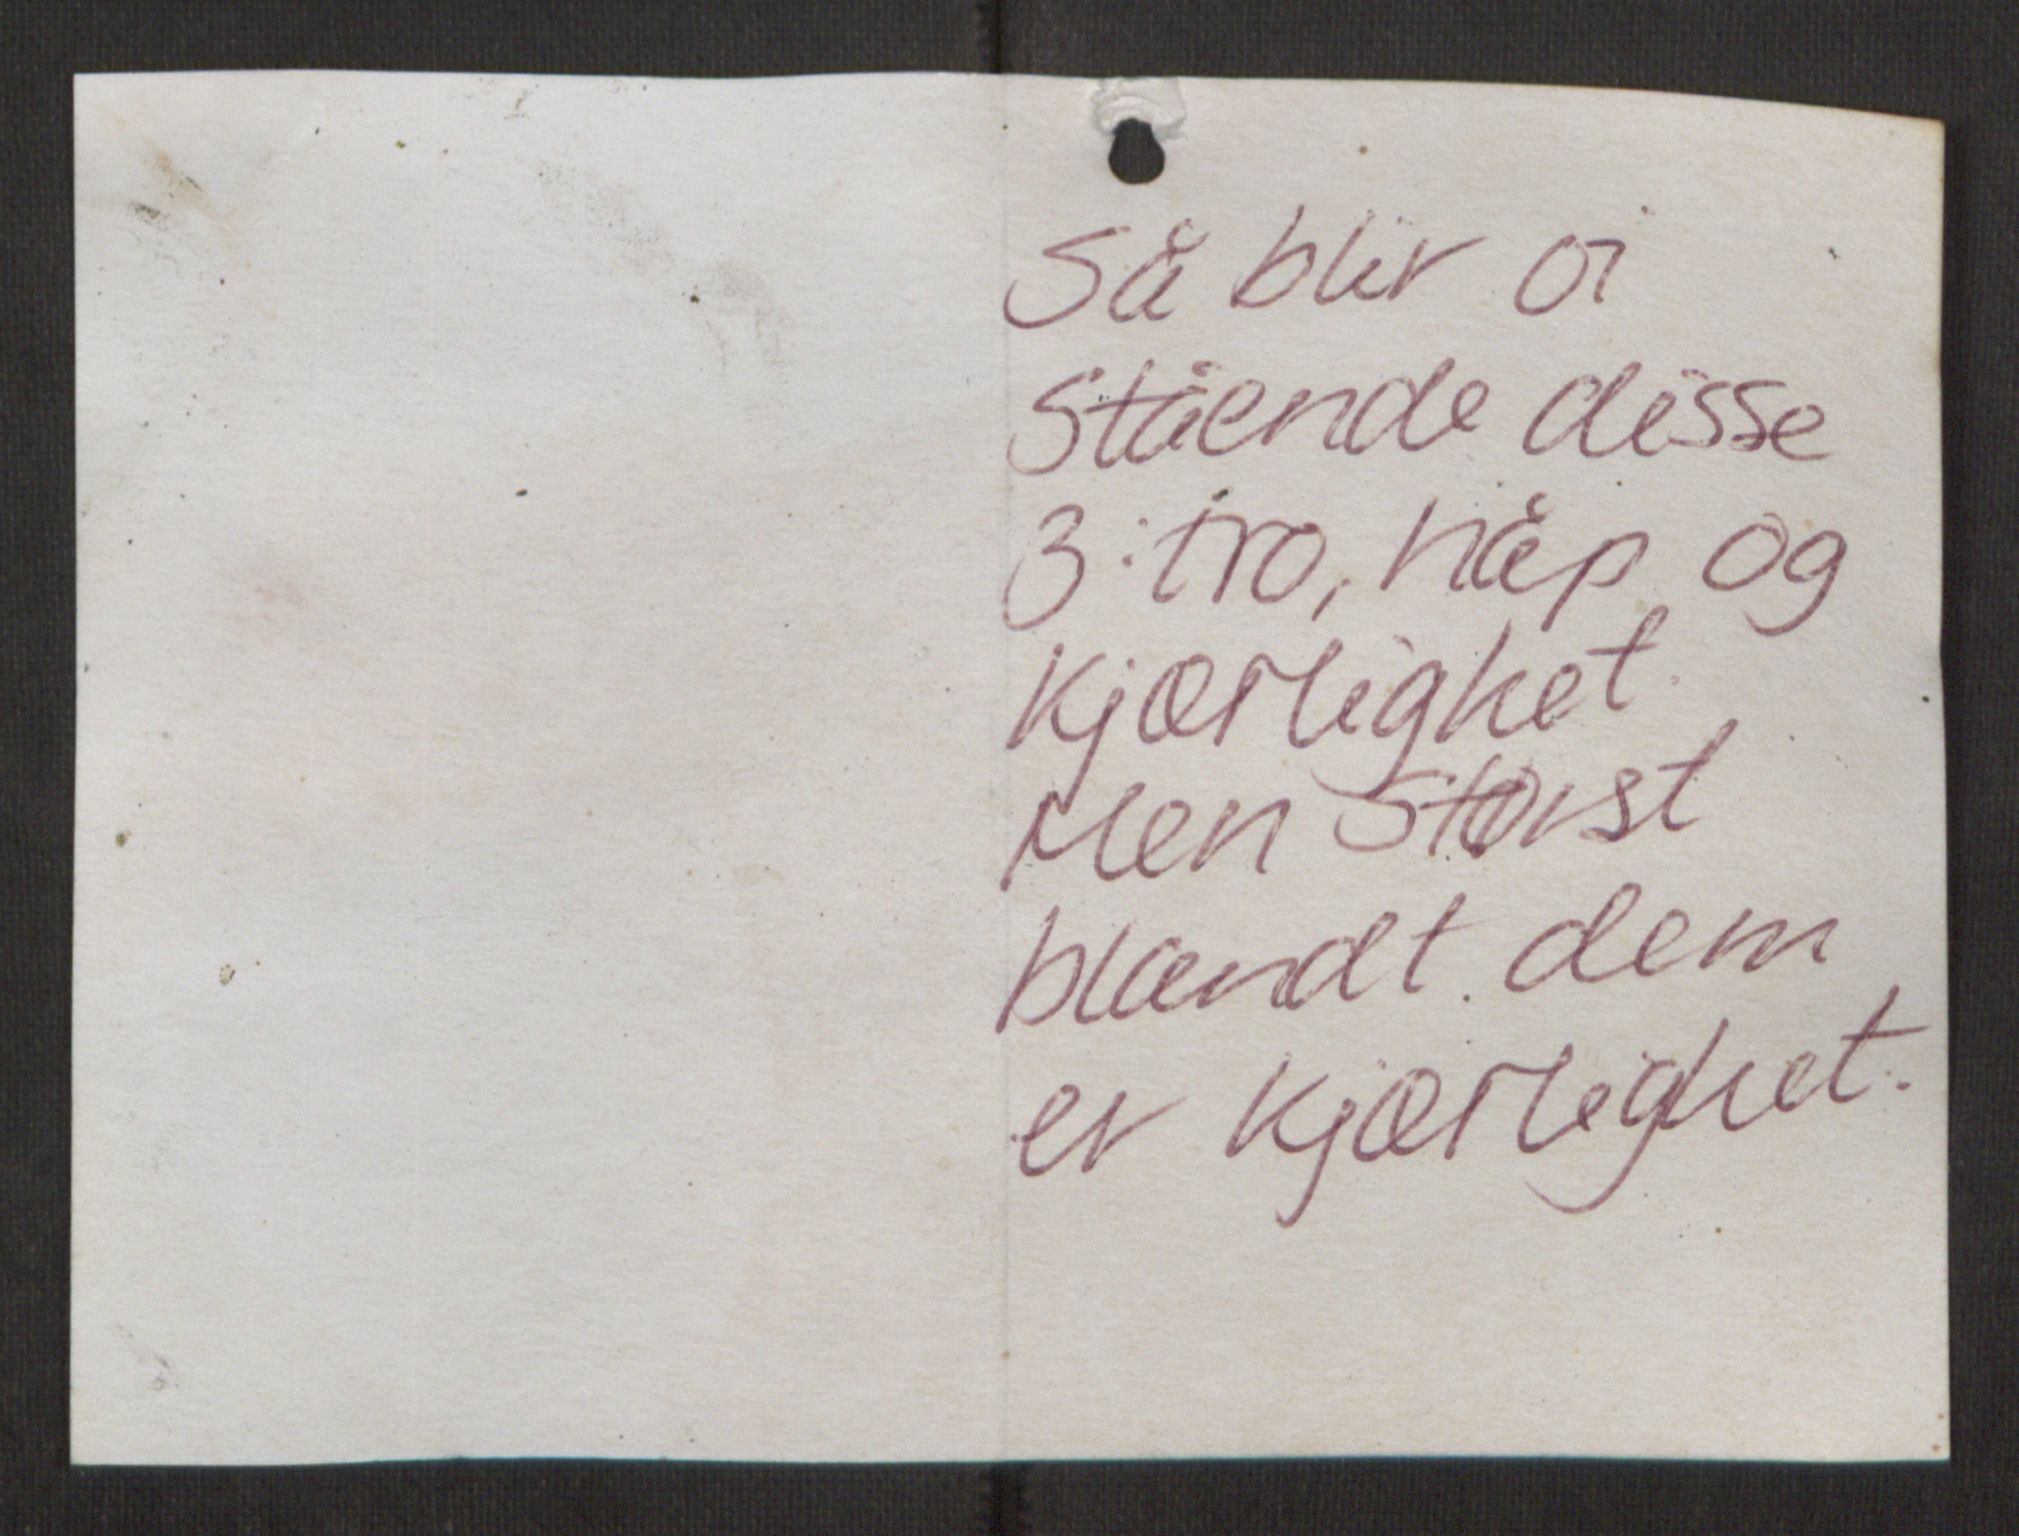 Så blir vi
stående disse
3: tro, håp og
kjærlighet.
Men størst
blandt dem
er kjærlighet.